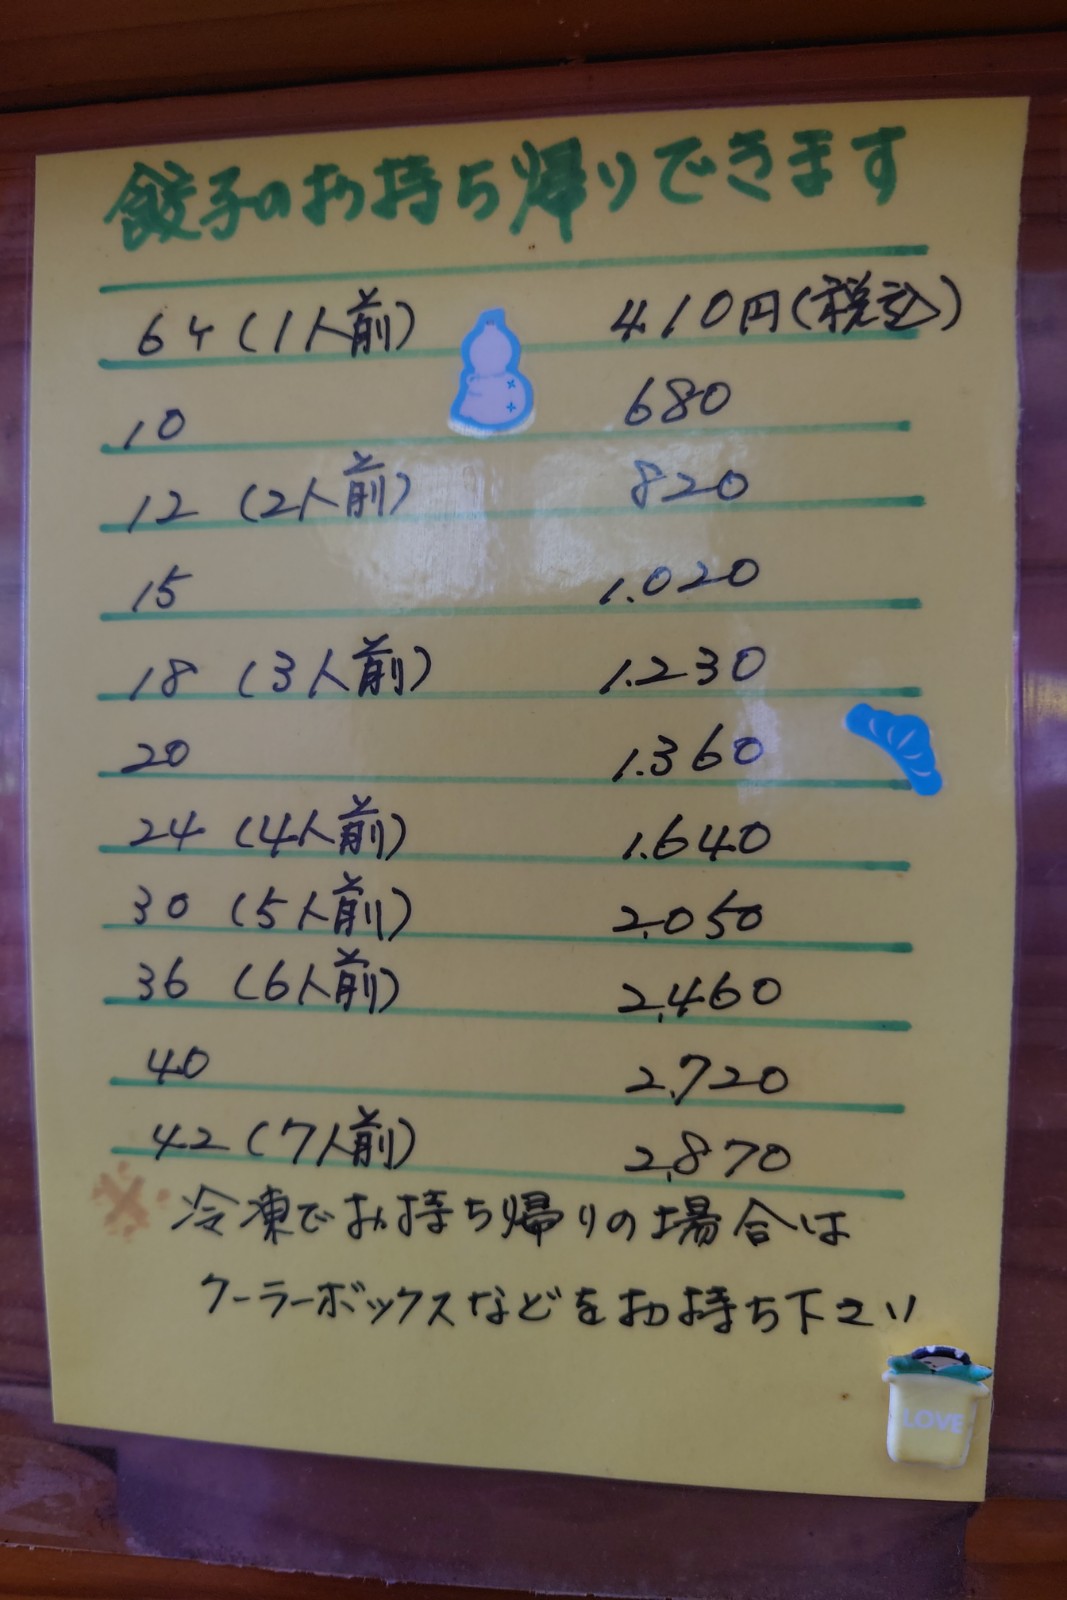 餃子のお持ち帰りできます
6ケ(1人前) 410円(税込)
10 680
12 (2人前) 820
15 1.020
18 (3人前) 1.230
20 1.360
24 (4人前) 1.640
30 (5人前) 2,050
36 (6人前) 2,460
40 2,720
42 (7人前) 2,870
※ 冷凍でお持ち帰りの場合は
クーラーボックスなどをお持ち下さい
LOVE